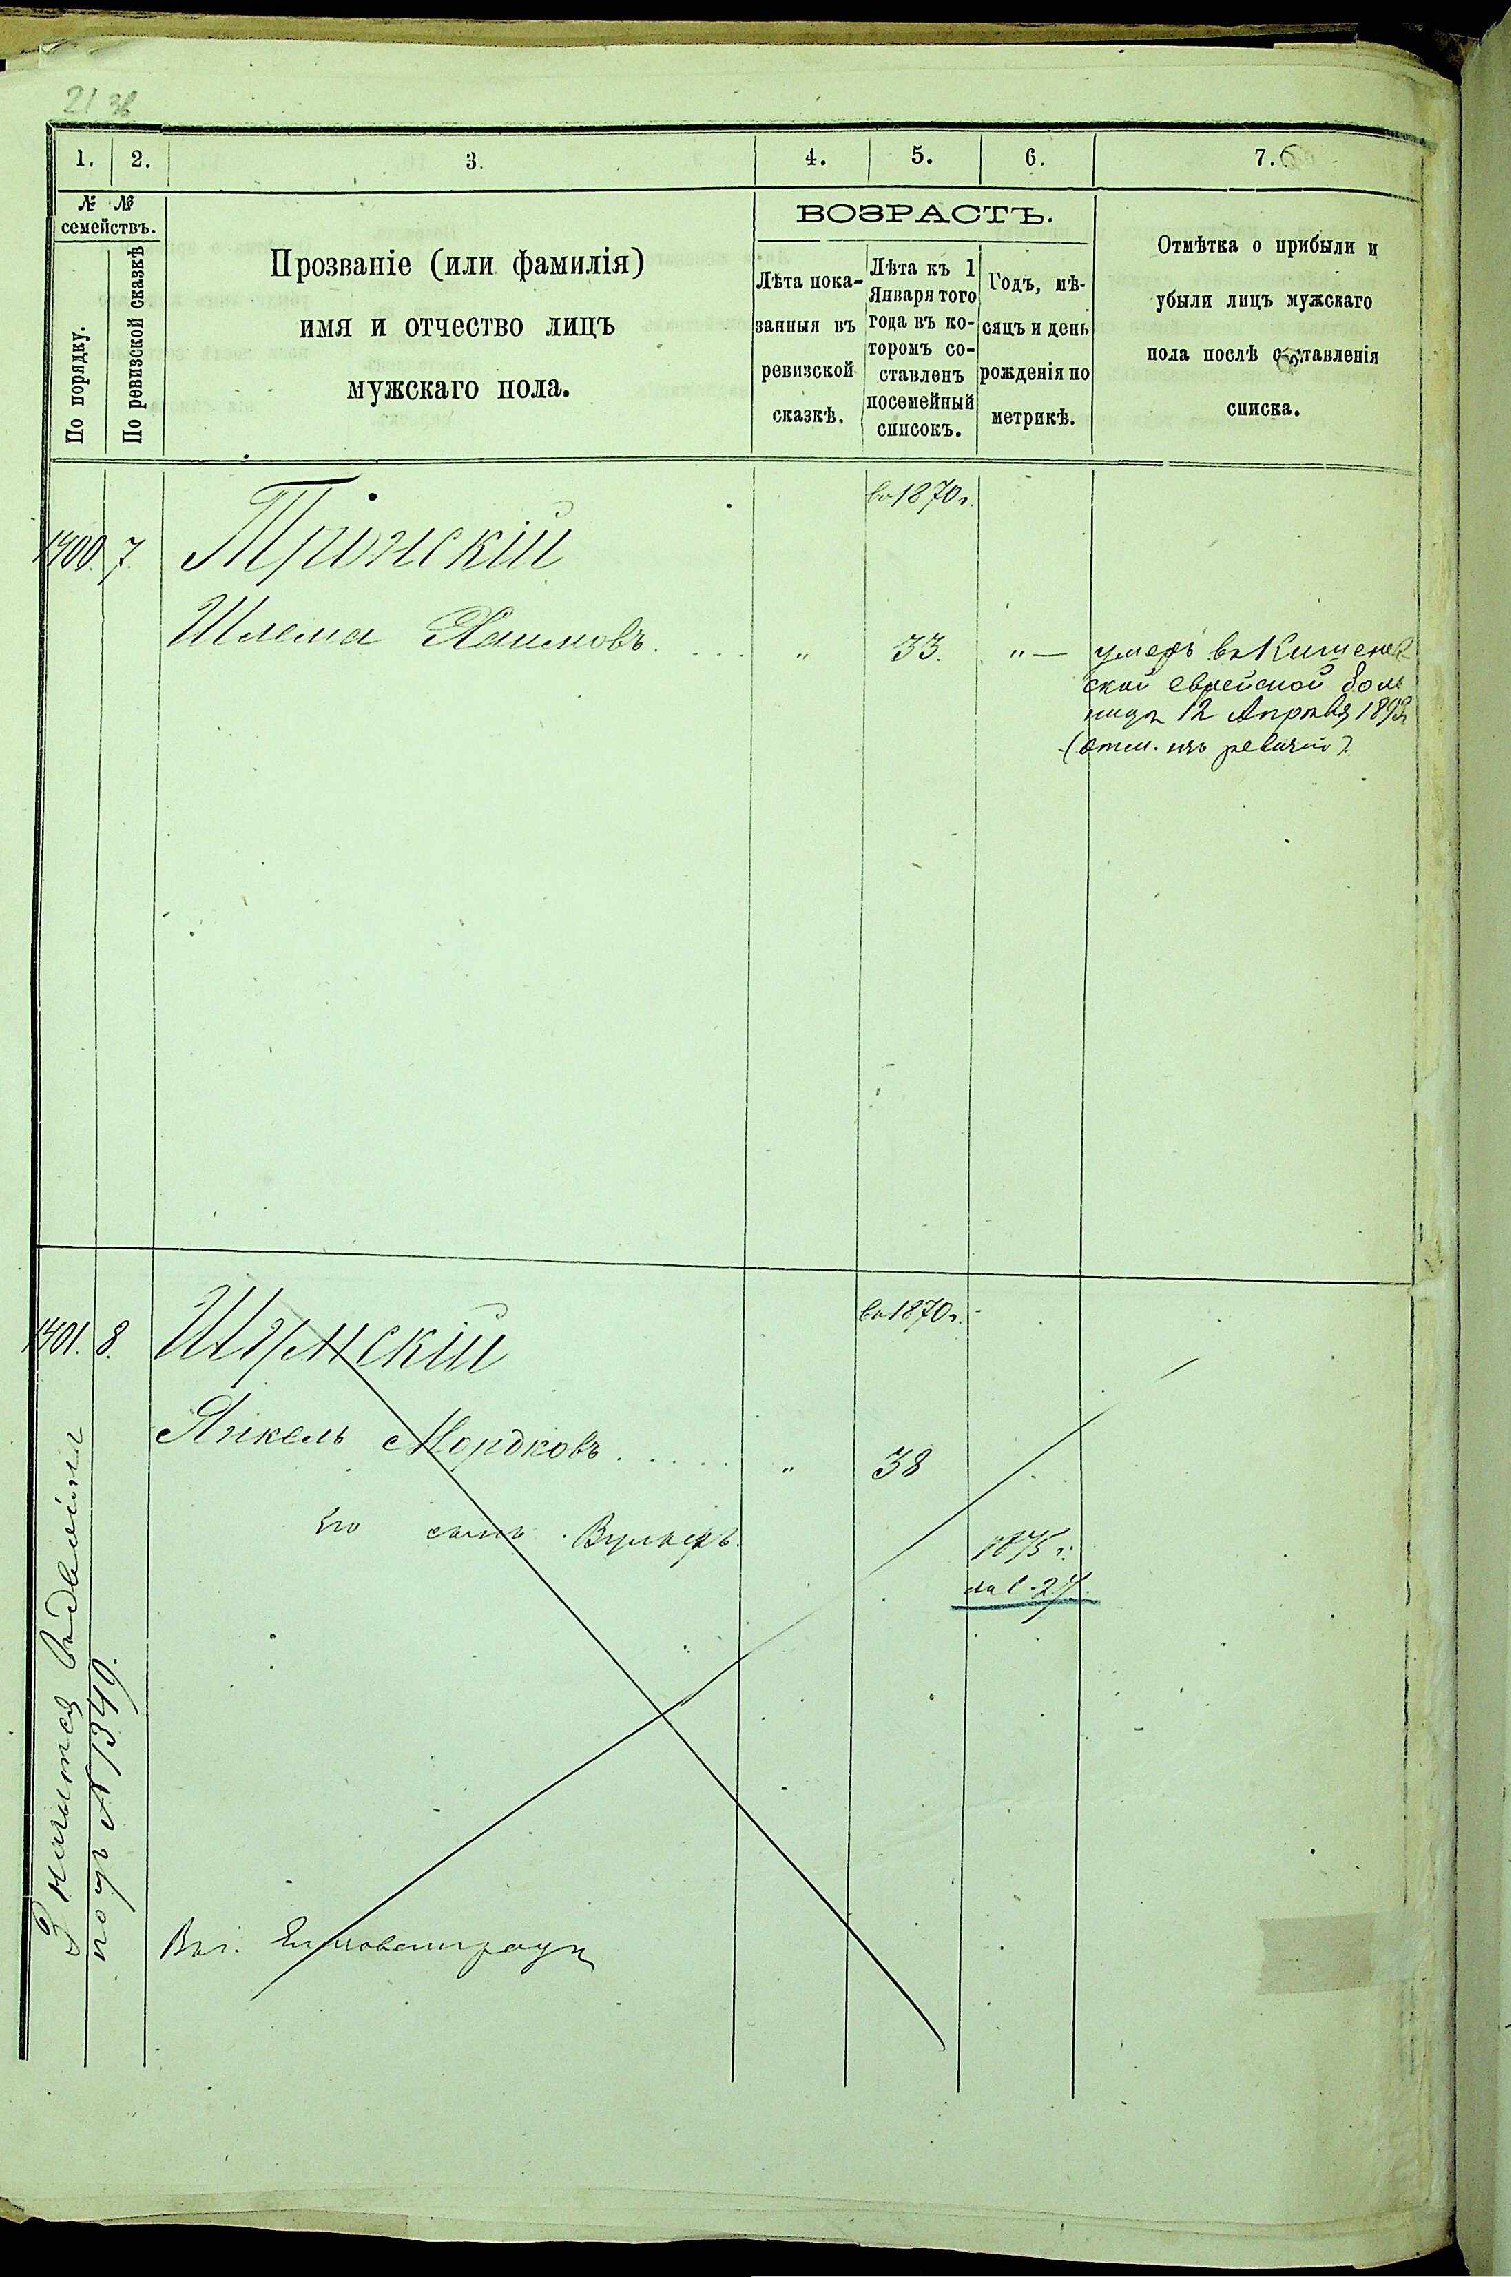 21 зв
1. 2. 3. 4. 5. 6. 7.
№ №
семействъ.
По порядку.
По ревизской сказкѣ
Прозваніе (или фамилія)
имя и отчество лицъ
мужскаго пола.
ВОЗРАСТЪ.
Лѣта пока-
занныя въ
ревизской
сказкѣ.
Лѣта къ 1
Января того
года въ ко-
торомъ со-
ставленъ
посемейный
списокъ.
Годъ, мѣ-
сяцъ и день
рожденія по
метрикѣ.
Отмѣтка о прибыли и
убыли лицъ мужскаго
пола послѣ составленія
списка.
въ 1870 г.
1400. 7. Тріонскій
Шлема Хаимовъ. . . . „ 33. „ —
умеръ въ Кишенев
ской еврейской боль
ницѣ 12 Апрѣля
(отм. изъ ревизіи)
въ 1870 г.
1401. 8.
Янкель Мордковъ . . . . . „ 38
Его сынъ 1875 г.
на 1 - 27
Значится
по № 1349.
Въ г. Елисаветградѣ